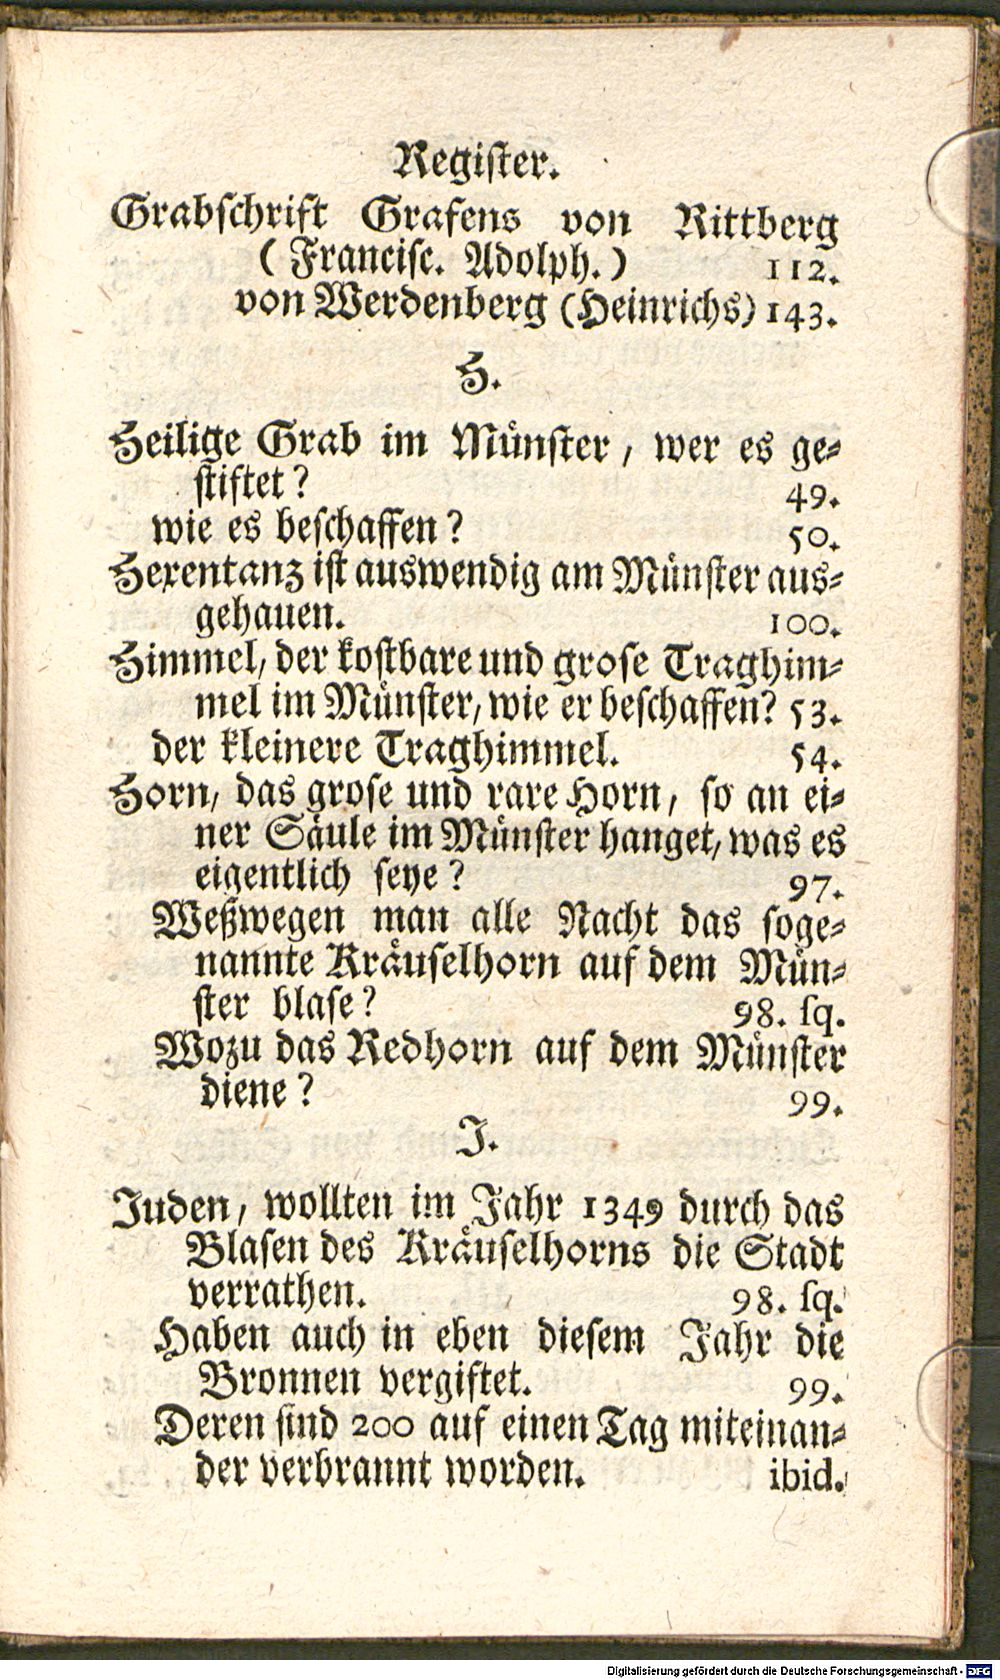 Register.
Grabschrift Grafens von Rittberg
( Francisc. Adolph. ) 112.
von Werdenberg (Heinrichs) 143.
H.
Heilige Grab im Münster, wer es ge-
stiftet? 49.
wie es beschaffen? 50.
Hexentanz ist auswendig am Münster aus-
gehauen. 100.
Himmel, der kostbare und grose Traghim-
mel im Münster, wie er beschaffen? 53.
der kleinere Traghimmel. 54.
Horn, das grose und rare Horn, so an ei-
ner Säule im Münster hanget, was es
eigentlich seye? 97.
Weßwegen man alle Nacht das soge-
nannte Kräuselhorn auf dem Mün-
ster blase? 98. sq.
Wozu das Redhorn auf dem Münster
diene? 99.
J.
Juden, wollten im Jahr 1349 durch das
Blasen des Kräuselhorns die Stadt
verrathen. 98. sq.
Haben auch in eben diesem Jahr die
Bronnen vergiftet. 99.
Deren sind 200 auf einen Tag miteinan-
der verbrannt worden. ibid.
Digitalisierung gefördert durch die Deutsche Forschungsgemeinschaft - DFG